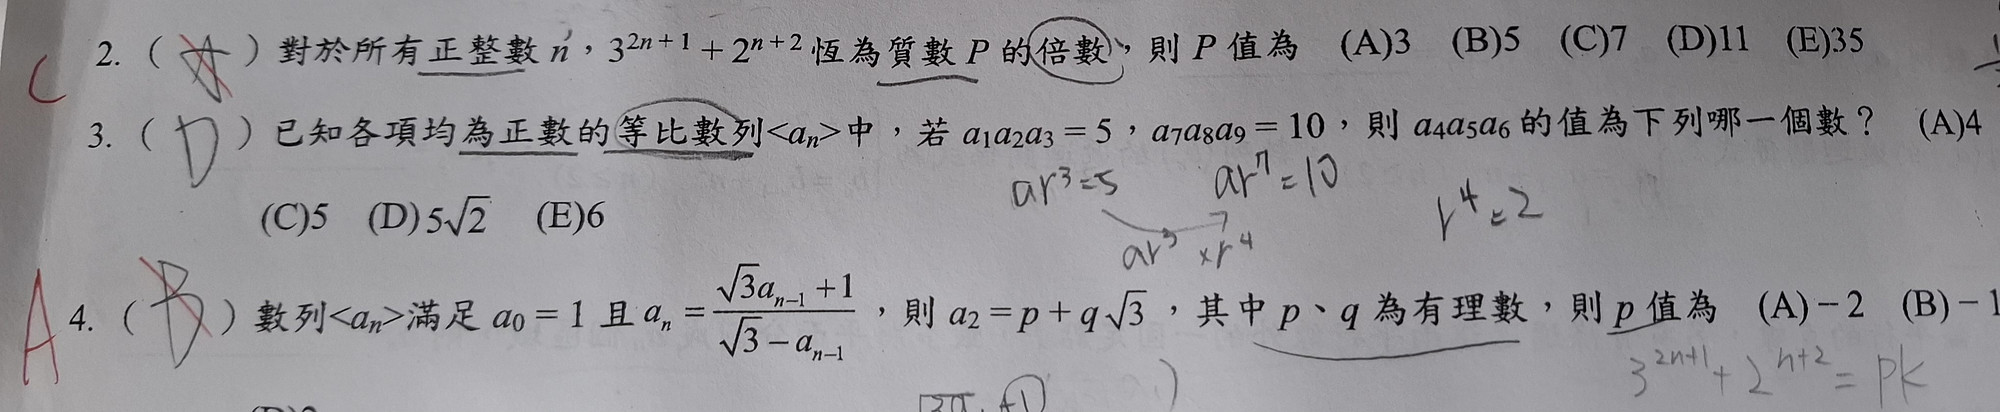 C 2. ( A ) 對於所有正整數 n，3^{2n+1} + 2^{n+2} 恆為質數 P 的倍數，則 P 值為 (A)3 (B)5 (C)7 (D)11 (E)35
3. ( D ) 已知各項均為正數的等比數列<a_n>中，若 a_1a_2a_3 = 5，a_7a_8a_9 = 10，則 a_4a_5a_6 的值為下列哪一個數？ (A)4
ar^3=5 ar^7=10 r^4=2
(C)5 (D) 5√2 (E)6
ar^3 ×r^4
A 4. ( B ) 數列<a_n>滿足 a_0 = 1 且 a_n = \frac{√3a_{n-1}+1}{√3-a_{n-1}}，則 a_2 = p + q√3，其中 p、q 為有理數，則 p 值為 (A)-2 (B)-1
3^{2n+1}+2^{n+2}=pk